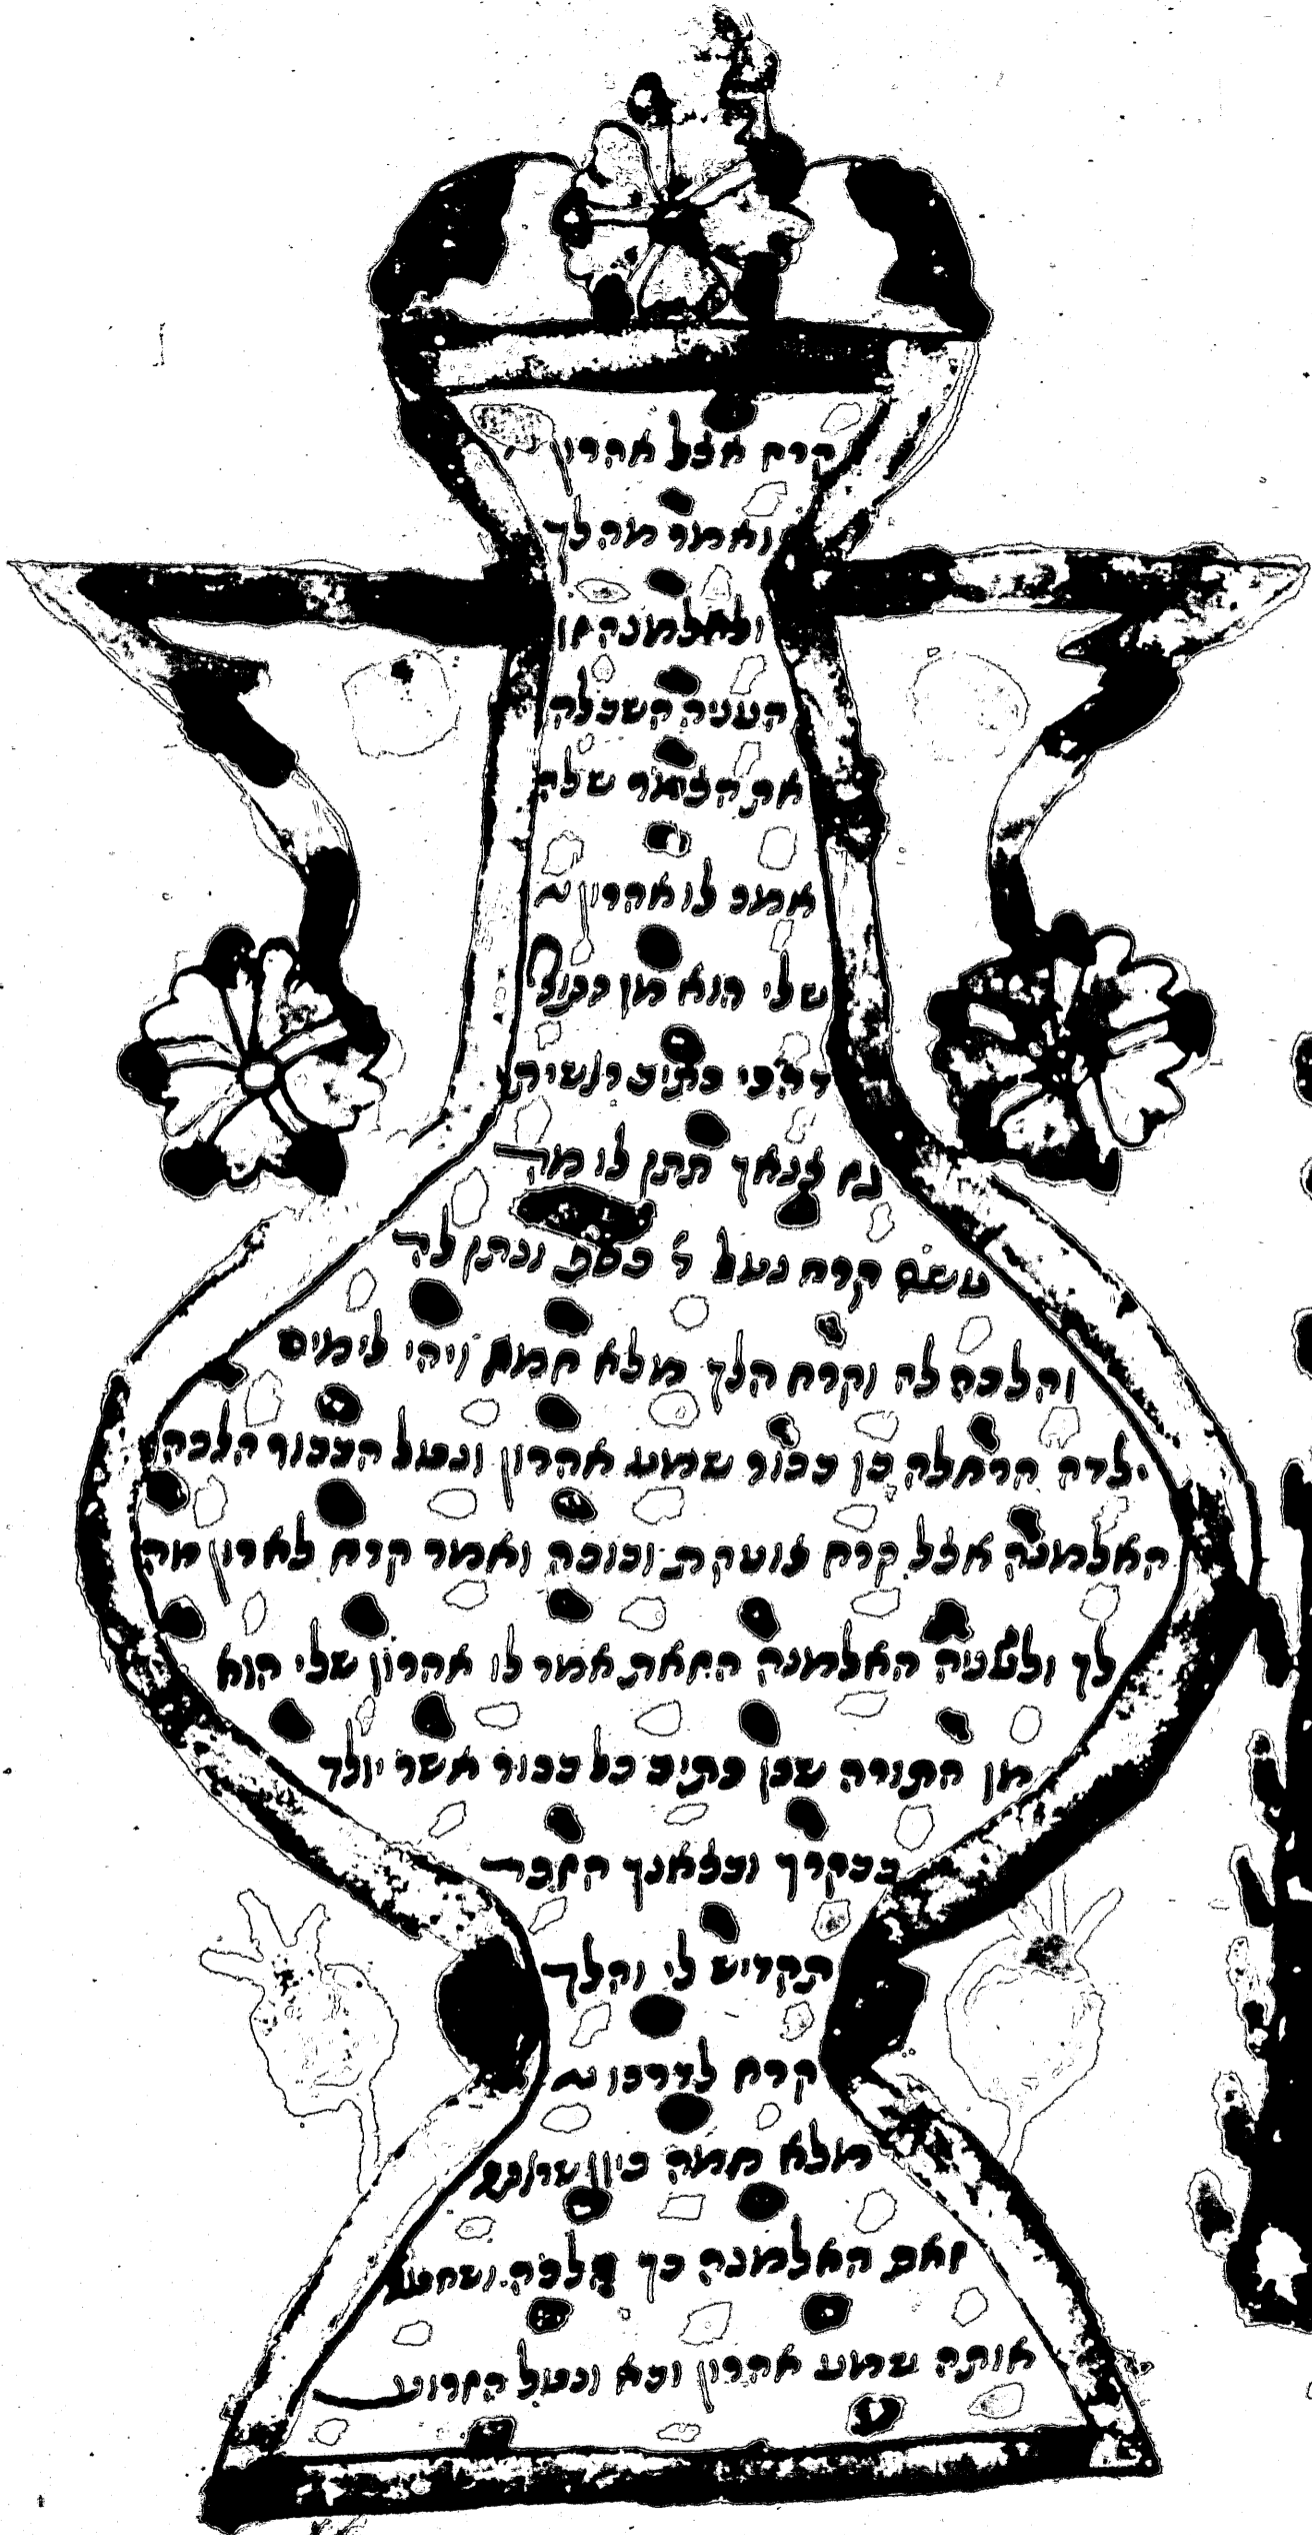 קרח אצל אהרון
ואמר מה לך
ולאלמנה זו
העניה השכלה
את הצמר שלה
אמר לו אהרון
שלי הוא מן
דהכי כתיב ראשית
גז צנאך תתן לו מה
עשה קרח נטל ז׳ כסף ונתן לה
והלכה לה וקרח הלך מלא חמה ויהי לימים
ילדה הרחלה בן בכור שמע אהרון ונטל הבכור הלכה
האלמנה אצל קרח צועקת ובוכה ואמר קרח לארון מה
לך ולעניה האלמנה הזאת אמר לו אהרון שלי הוא
מן התורה שכן כתיב כל בכור אשר יולד
בבקרך ובצאנך הזכר
תקדיש לי והלך
קרח לדרכו
מלא חמה כיון
זאת האלמנה כך הלכה ושחטה
אותה שמע אהרון ובא ונטל הזרוע